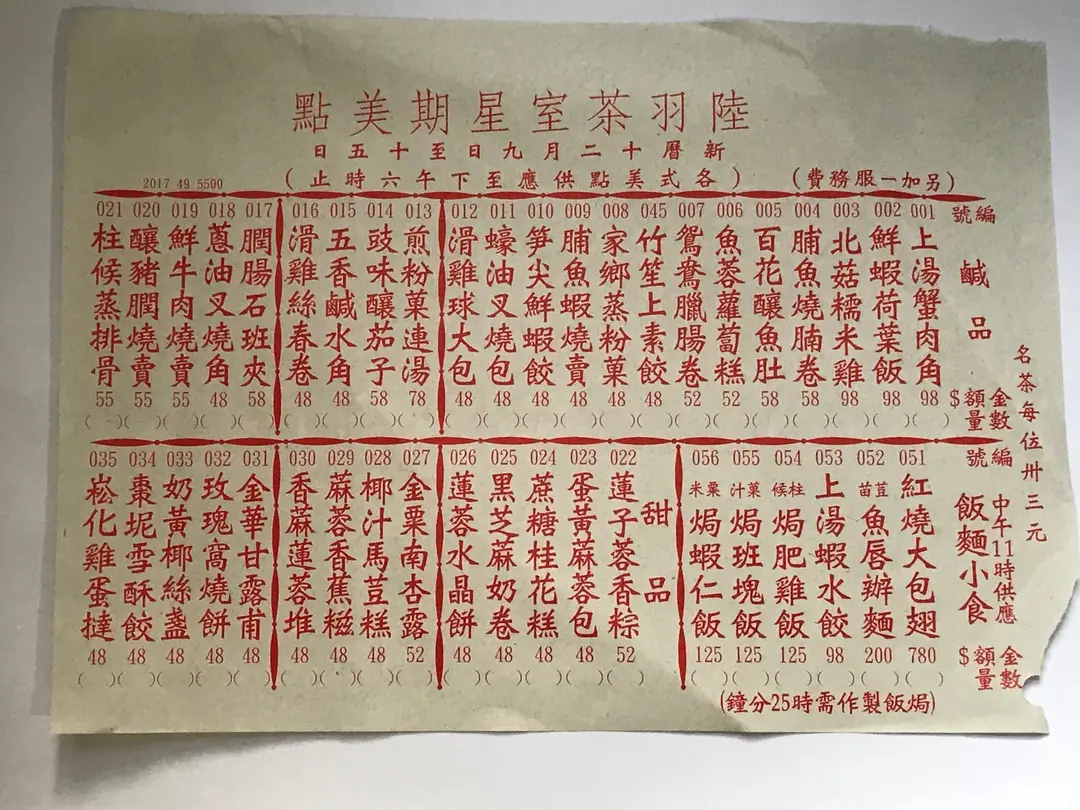 陸羽茶室星期美點
新曆十二月九日至十五日
(各式美點供應至下午六時止)
(另加一服務費)
2017 49 5500
名茶每位卅三元
編號
鹹品
金額 $
數量
001 上湯蟹肉角 98
002 鮮蝦荷葉飯 98
003 北菇糯米雞 98
004 脯魚燒腩卷 58
005 百花釀魚肚 58
006 魚蓉蘿蔔糕 52
007 鴛鴦臘腸卷 52
045 竹笙上素餃 48
008 家鄉蒸粉菓 48
009 脯魚蝦燒賣 48
010 笋尖鮮蝦餃 48
011 蠔油叉燒包 48
012 滑雞球大包 48
013 煎粉菓連湯 78
014 豉味釀茄子 58
015 五香鹹水角 48
016 滑雞絲春卷 48
017 膶腸石班夾 58
018 蔥油叉燒角 48
019 鮮牛肉燒賣 55
020 釀豬膶燒賣 55
021 柱候蒸排骨 55
編號
飯麵小食
中午11時供應
金額 $
數量
051 紅燒大包翅 780
052 荳苗魚唇辦麵 200
053 上湯蝦水餃 98
054 柱候焗肥雞飯 125
055 菓汁焗班塊飯 125
056 粟米焗蝦仁飯 125
(焗飯製作需時25分鐘)
甜品
022 蓮子蓉香粽 52
023 蛋黃麻蓉包 48
024 蔗糖桂花糕 48
025 黑芝麻奶卷 48
026 蓮蓉水晶餅 48
027 金粟南杏露 52
028 椰汁馬荳糕 48
029 蔴蓉香蕉糍 48
030 香蔴蓮蓉堆 48
031 金華甘露甫 48
032 玫瑰窩燒餅 48
033 奶黃椰絲盞 48
034 棗坭雪酥餃 48
035 崧化雞蛋撻 48